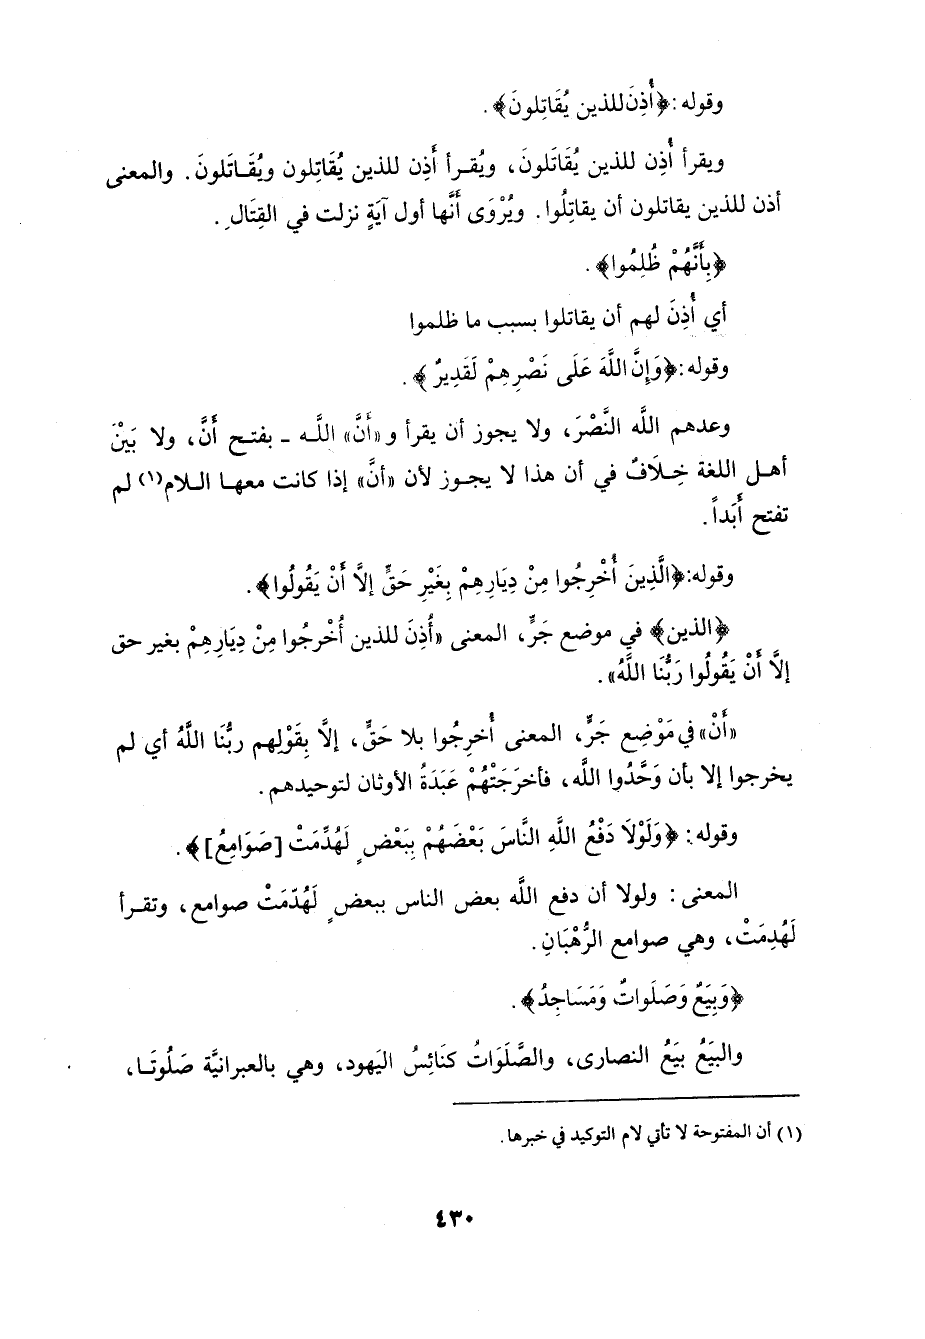 وقوله : ﴿أُذِنَ للذين يُقَاتِلونَ﴾ .
ويقرأ أُذِن للذين يُقَاتَلونَ، ويُقرأ أَذِن للذين يُقَاتِلون ويُقَاتَلونَ . والمعنى
أذن للذين يقاتلون أن يقاتِلُوا . ويُرْوَى أنَّها أول آيَةٍ نزلت في القِتَالِ .
﴿بِأَنَّهُمْ ظُلِمُوا﴾ .
أي أُذِنَ لهم أن يقاتلوا بسبب ما ظلموا
وقوله : ﴿وَإِنَّ اللَّهَ عَلَى نَصْرِهِمْ لَقَدِيرٌ ﴾ .
وعدهم اللَّه النَّصْرَ، ولا يجوز أن يقرأ و «أَنَّ» اللَّه ـ بفتح أَنَّ، ولا بَيْنَ
أهل اللغة خِلَافٌ في أن هذا لا يجوز لأن «أنَّ» إذا كانت معها اللام(١) لم
تفتح أَبَداً .
وقوله : ﴿الَّذِينَ أُخْرِجُوا مِنْ دِيَارِهِمْ بِغَيْرِ حَقٍّ إلَّا أَنْ يَقُولُوا﴾ .
﴿الذين﴾ في موضع جَرٍّ، المعنى «أُذِنَ للذين أُخْرِجُوا مِنْ دِيَارِهِمْ بغير حق
إلَّا أَنْ يَقُولُوا رَبُّنَا اللَّهُ» .
«أَنْ» في مَوْضِع جَرٍّ، المعنى أُخرِجُوا بلا حَقٍّ، إلَّا بِقَوْلِهم ربُّنَا اللَّهُ أي لم
يخرجوا إلا بأن وَحَّدُوا اللَّه، فأخرَجَتْهُمْ عَبَدَةُ الأوثان لتوحيدهم .
وقوله : ﴿وَلَوْلَا دَفْعُ اللَّهِ النَّاسَ بَعْضَهُمْ بِبَعْضٍ لَهُدِّمَتْ [صَوَامِعُ]﴾ .
المعنى : ولولا أن دفع اللَّه بعض الناس ببعضٍ لَهُدّمَتْ صوامع، وتقرأ
لَهُدِمَتْ، وهي صوامع الرُّهْبَانِ .
﴿وَبِيَعٌ وَصَلَواتٌ وَمَسَاجِدُ﴾ .
والبِيَعُ بِيَعُ النصارى، والصَّلَوَاتُ كنَائِسُ اليَهود، وهي بالعبرانيَّة صَلُوتَا،
(١) أن المفتوحة لا تأتي لام التوكيد في خبرها .
٤٣٠